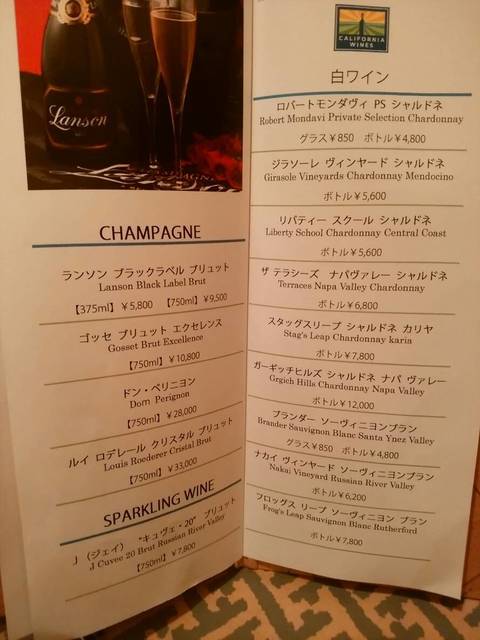 Lanson
CHAMPAGNE
ランソン ブラックラベル ブリュット
Lanson Black Label Brut
【375ml】￥5,800 【750ml】￥9,500
ゴッセ ブリュット エクセレンス
Gosset Brut Excellence
【750ml】￥10,800
ドン・ペリニヨン
Dom Perignon
【750ml】￥28,000
ルイ ロデレール クリスタル ブリュット
Louis Roederer Cristal Brut
【750ml】￥33,000
SPARKLING WINE
J （ジェイ） “キュヴェ・20” ブリュット
J Cuvee 20 Brut Russian River Valley
【750ml】￥7,800
CALIFORNIA
WINES
白ワイン
ロバートモンダヴィ PS シャルドネ
Robert Mondavi Private Selection Chardonnay
グラス￥850 ボトル￥4,800
ジラソーレ ヴィンヤード シャルドネ
Girasole Vineyards Chardonnay Mendocino
ボトル￥5,600
リバティー スクール シャルドネ
Liberty School Chardonnay Central Coast
ボトル￥5,600
ザ テラシーズ ナパヴァレー シャルドネ
Terraces Napa Valley Chardonnay
ボトル￥6,800
スタッグスリープ シャルドネ カリヤ
Stag's Leap Chardonnay karia
ボトル￥7,800
ガーギッチヒルズ シャルドネ ナパ ヴァレー
Grgich Hills Chardonnay Napa Valley
ボトル￥12,000
ブランダー ソーヴィニヨンブラン
Brander Sauvignon Blanc Santa Ynez Valley
グラス￥850 ボトル￥4,800
ナカイ ヴィンヤード ソーヴィニヨンブラン
Nakai Vineyard Russian River Valley
ボトル￥6,200
フロッグス リープ ソーヴィニヨン ブラン
Frog's Leap Sauvignon Blanc Rutherford
ボトル￥7,800